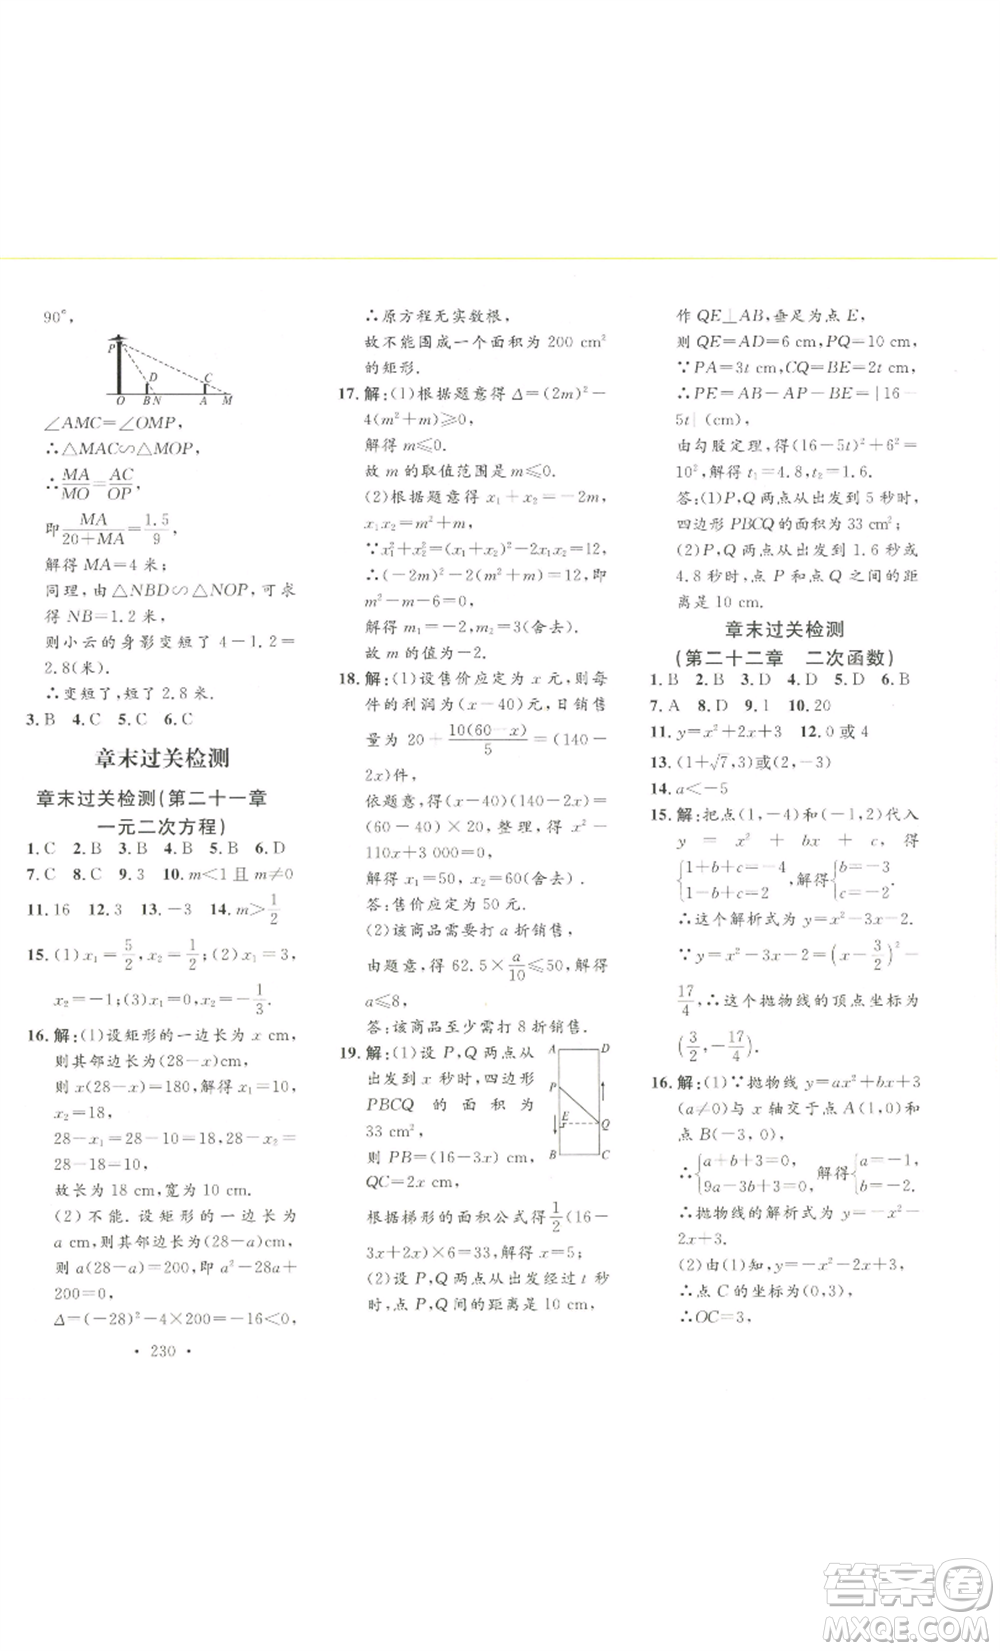 90°,
P
D
C
O
B
N
A
M
∠AMC=∠OMP,
∴△MAC∽△MOP,
∴MA/MO=AC/OP,
即MA/(20+MA)=1.5/9,
解得 MA=4 米;
同理,由△NBD∽△NOP,可求
得 NB=1.2 米,
则小云的身影变短了 4-1.2=
2.8(米).
∴变短了,短了 2.8 米.
3.B 4.C 5.C 6.C
章末过关检测
章末过关检测(第二十一章
一元二次方程)
1.C 2.B 3.B 4.B 5.B 6.D
7.C 8.C 9.3 10.m<1且m≠0
11.16 12.3 13.-3 14.m>1/2
15.(1)x₁=5/2,x₂=1/2;(2)x₁=3,
x₂=-1;(3)x₁=0,x₂=-1/3.
16.解:(1)设矩形的一边长为 x cm,
则其邻边长为(28-x)cm,
则 x(28-x)=180,解得 x₁=10,
x₂=18,
28-x₁=28-10=18,28-x₂=
28-18=10,
故长为 18 cm,宽为 10 cm.
(2)不能.设矩形的一边长为
a cm,则其邻边长为(28-a)cm,
则 a(28-a)=200,即 a²-28a+
200=0,
Δ=(-28)²-4×200=-16<0,
· 230 ·
∴原方程无实数根,
故不能围成一个面积为 200 cm²
的矩形.
17.解:(1)根据题意得 Δ=(2m)²-
4(m²+m)⩾0,
解得 m⩽0.
故 m 的取值范围是 m⩽0.
(2)根据题意得 x₁+x₂=-2m,
x₁x₂=m²+m,
∵x₁²+x₂²=(x₁+x₂)²-2x₁x₂=12,
∴(-2m)²-2(m²+m)=12,即
m²-m-6=0,
解得 m₁=-2,m₂=3(舍去).
故 m 的值为-2.
18.解:(1)设售价应定为 x 元,则每
件的利润为(x-40)元,日销售
量为 20+10(60-x)/5=(140-
2x)件,
依题意,得(x-40)(140-2x)=
(60-40)×20,整理,得 x²-
110x+3 000=0,
解得 x₁=50,x₂=60(舍去).
答:售价应定为 50 元.
(2)该商品需要打 a 折销售,
由题意,得 62.5×a/10⩽50,解得
a⩽8,
答:该商品至少需打 8 折销售.
19.解:(1)设 P,Q 两点从
出发到 x 秒时,四边形
PBCQ 的面积为
33 cm²,
则 PB=(16-3x)cm,
QC=2x cm,
A
D
P
E
Q
B
C
根据梯形的面积公式得1/2(16-
3x+2x)×6=33,解得 x=5.
(2)设 P,Q 两点从出发经过 t 秒
时,点 P,Q 间的距离是 10 cm,
作 QE⊥AB,垂足为点 E,
则 QE=AD=6 cm,PQ=10 cm,
∵PA=3t cm,CQ=BE=2t cm,
∴PE=AB-AP-BE=|16-
5t|(cm),
由勾股定理,得(16-5t)²+6²=
10²,解得 t₁=4.8,t₂=1.6.
答:(1)P,Q 两点从出发到 5 秒时,
四边形 PBCQ 的面积为 33 cm²;
(2)P,Q 两点从出发到 1.6 秒或
4.8 秒时,点 P 和点 Q 之间的距
离是 10 cm.
章末过关检测
(第二十二章 二次函数)
1.B 2.B 3.D 4.D 5.D 6.B
7.A 8.D 9.1 10.20
11.y=x²+2x+3 12.0或4
13.(1+√7,3)或(2,-3)
14.a<-5
15.解:把点(1,-4)和(-1,2)代入
y = x² + bx + c, 得
{1+b+c=-4, 1-b+c=2, 解得{b=-3, c=-2.
∴这个解析式为 y=x²-3x-2.
∵y=x²-3x-2=(x-3/2)²-
17/4,∴这个抛物线的顶点坐标为
(3/2,-17/4).
16.解:(1)∵抛物线 y=ax²+bx+3
(a≠0)与 x 轴交于点 A(1,0)和
点 B(-3,0),
∴{a+b+3=0, 9a-3b+3=0, 解得{a=-1, b=-2.
∴抛物线的解析式为 y=-x²-
2x+3.
(2)由(1)知,y=-x²-2x+3,
∴点 C 的坐标为(0,3),
∴OC=3,
答案卷
MXQE.COM